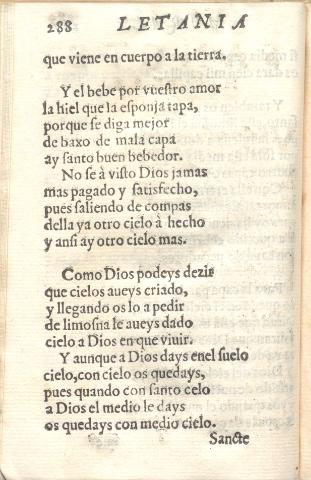 288 LETANIA
que viene en cuerpo a la tierra.
Y el bebe por vuestro amor
la hiel que la esponja tapa,
porque se diga mejor
de baxo de mala capa
ay santo buen bebedor.
No se à visto Dios jamas
mas pagado y satisfecho,
pues saliendo de compas
della ya otro cielo à hecho
y ansi ay otro cielo mas.
Como Dios podeys dezir
que cielos aueys criado,
y llegando os lo a pedir
de limosna le aueys dado
cielo a Dios en que viuir.
Y aunque a Dios days enel suelo
cielo, con cielo os quedays,
pues quando con santo celo
a Dios el medio le days
os quedays con medio cielo.
Sancte